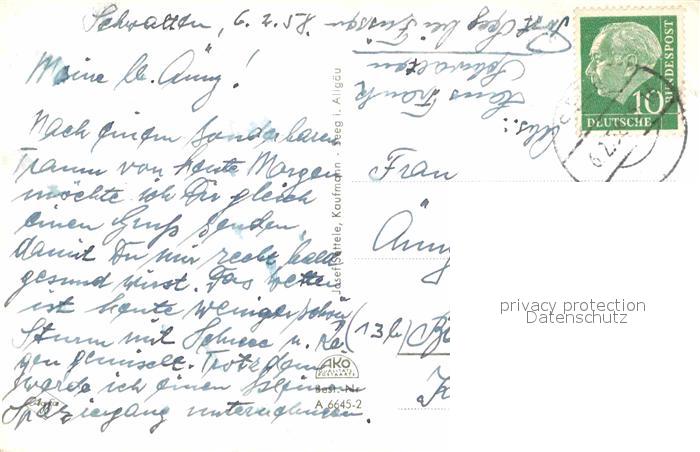 Schwalten, 6.2.58.
Meine lb. Änny!
Nach einem sonderbaren
Traum von heute Morgen
möchte ich Dir gleich
einen Gruß senden,
damit Du mir recht bald
gesund wirst. Das Wetter
ist heute weniger schön
Sturm mit Schnee u. Re-
gen gemischt. Trotzdem
werde ich einen kleinen
Spaziergang unternehmen.
Josef Settele, Kaufmann - Seeg i. Allgäu
AKO
QUALITÄTS
POSTKARTE
Best.-Nr.
A 6645-2
Abs.: Hans Frank
Schwalten
Post Seeg bei Füssen
10
DEUTSCHE
BUNDESPOST
6.2.5
Frau
Änny
(13b)
privacy protection
Datenschutz